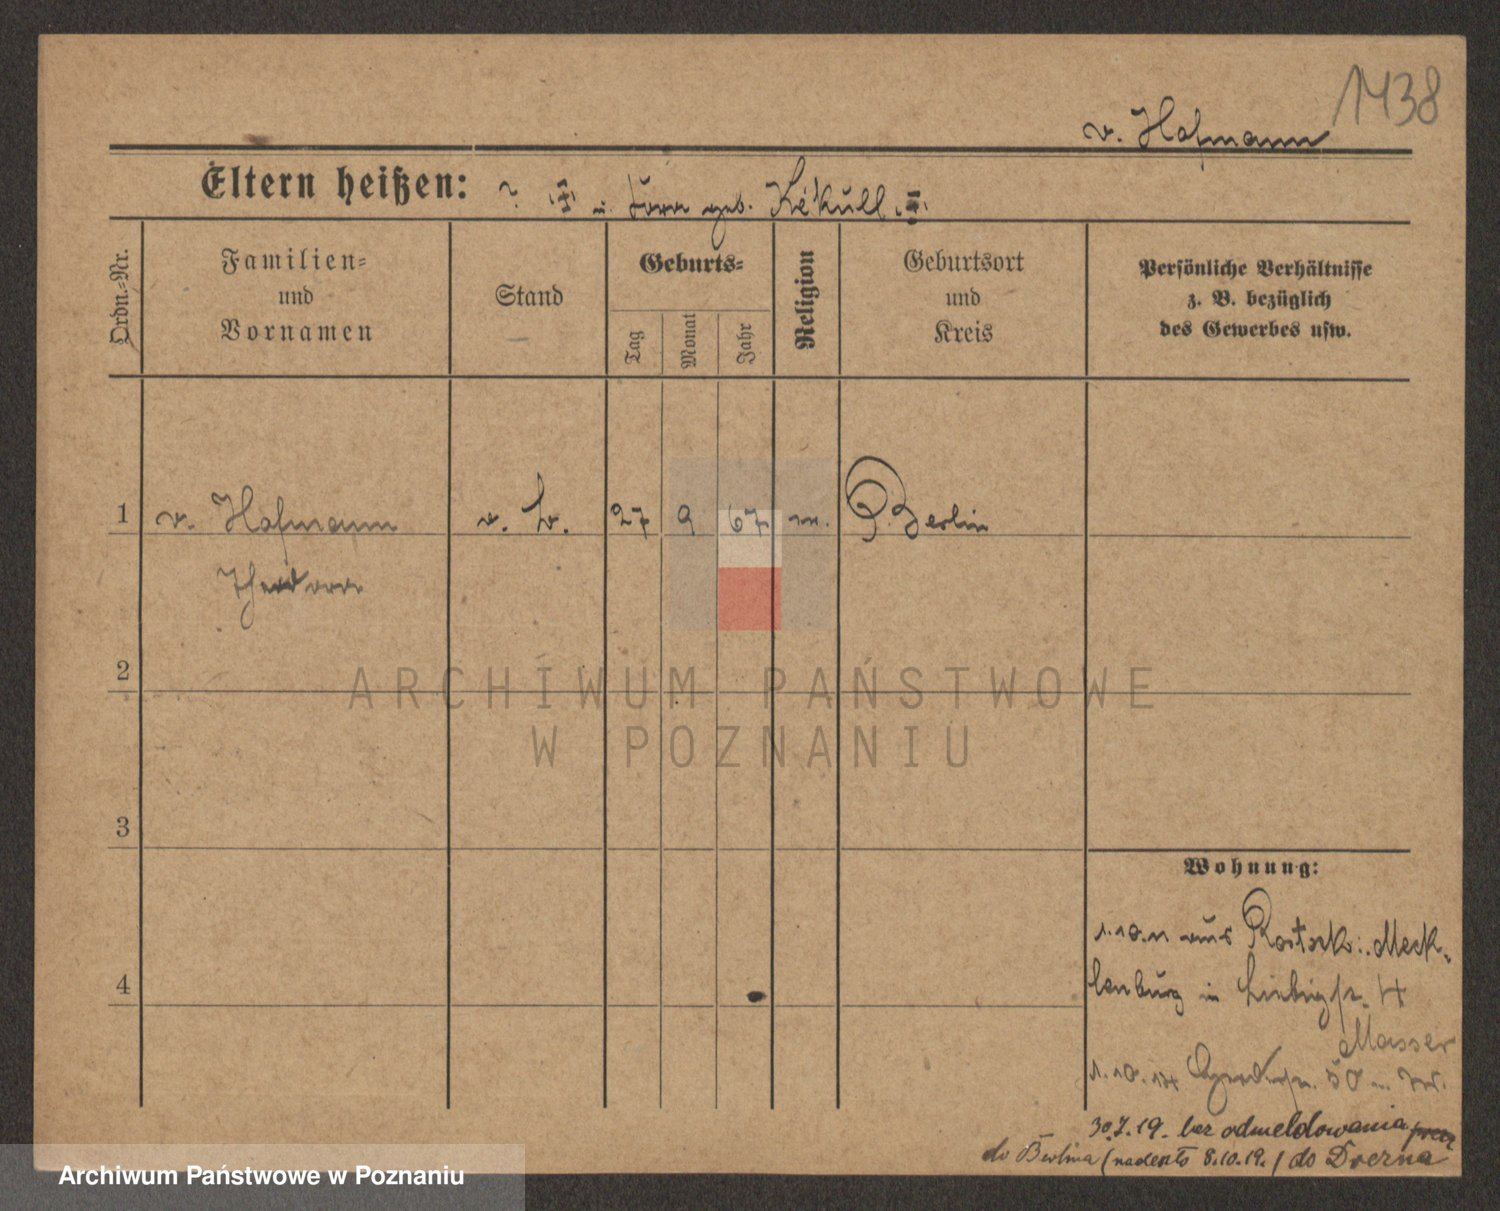 1438
v. Hofmann
Eltern heißen: ? u. geb. Kékull
Ordn.-Nr.
Familien-
und
Vornamen
Stand
Geburts-
Tag
Monat
Jahr
Religion
Geburtsort
und
Kreis
Persönliche Verhältnisse
z. B. bezüglich
des Gewerbes usw.
1 v. Hofmann 27 9 67 Berlin
Theodora
2
3
4
Wohnung:
1.10.11 aus Rostock: Meck-
lenburg in 4
Masser
1.10.14 50
30.7.19. bez odmeldowania
do Berlina (nadeszło 8.10.19.) do
ARCHIWUM PAŃSTWOWE
W POZNANIU
Archiwum Państwowe w Poznaniu